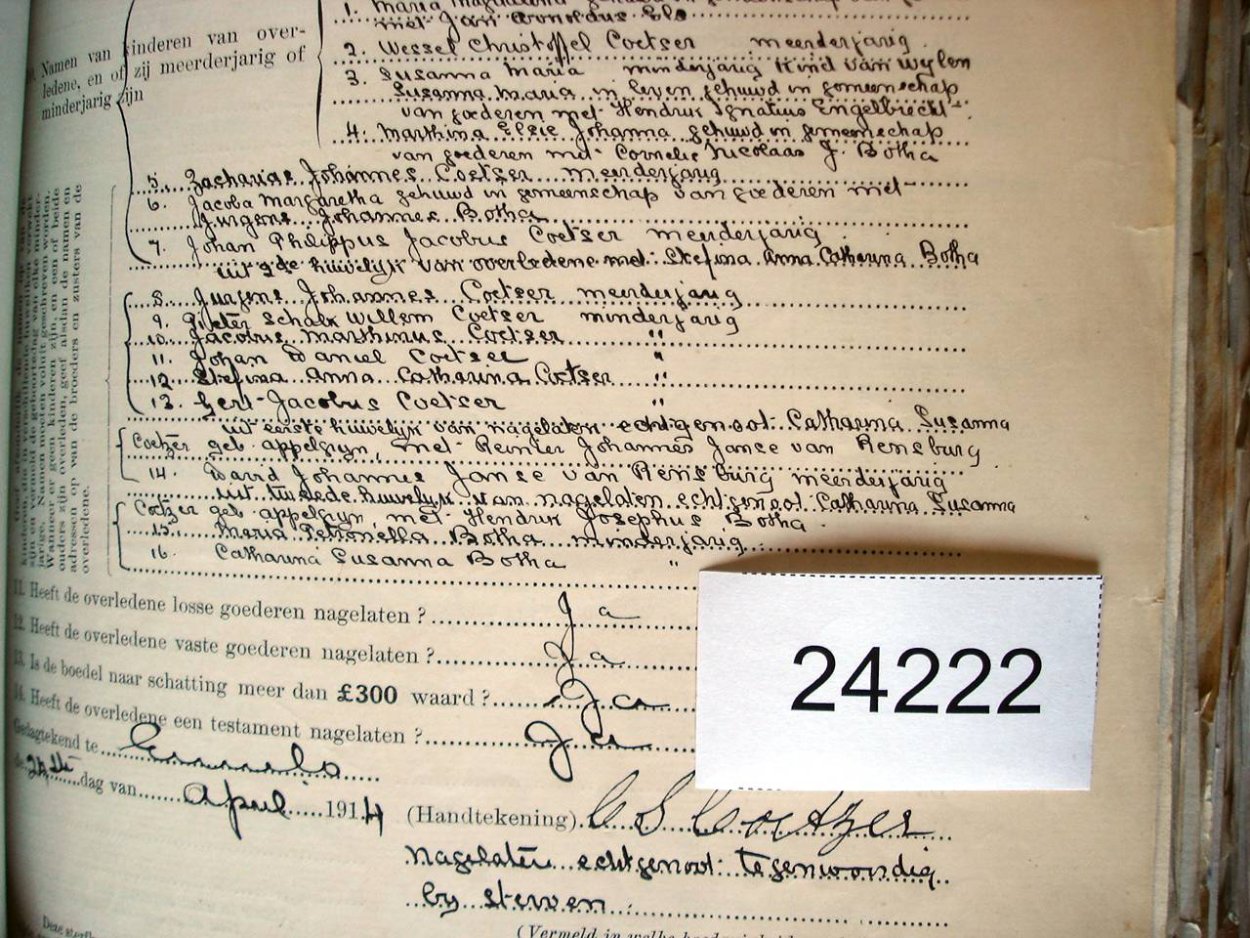 1. Maria Magdalena gehuwd in gemeenschap van
met Jan Arnoldus Els
Namen van kinderen van over-
ledene, en of zij meerderjarig of
minderjarig zijn
2. Wessel Christoffel Coetser meerderjarig
3. Susanna Maria minderjarig kind van wylen
Susanna Maria in leven gehuwd in gemeenschap
van goederen met Hendrik Ignatius Engelbrecht
4. Marthina Elsie Johanna gehuwd in gemeenschap
van goederen met Cornelis Nicolaas J. Botha
5. Zacharias Johannes Coetser meerderjarig
6. Jacoba Margaretha gehuwd in gemeenschap van goederen met
Jurgens Johannes Botha
7. Johan Philippus Jacobus Coetser meerderjarig
uit 2de huwelijk van overledene met Stefina Anna Catharina Botha
8. Jurgens Johannes Coetser meerderjarig
9. Pieter Schalk Willem Coetser minderjarig
10. Jacobus Marthinus Coetser "
11. Johan Daniel Coetser "
12. Stefina Anna Catharina Coetser "
13. Gert Jacobus Coetser "
uit eerste huwelijk van nagelaten echtgenoot Catharina Susanna
Coetzer geb. appelgryn, met Reinier Johannes Janse van Rensburg
14. David Johannes Janse van Rensburg meerderjarig
uit tweede huwelyk van nagelaten echtgenoot Catharina Susanna
Coetzer geb. appelgryn, met Hendrik Josephus Botha
15. Maria Petronella Botha minderjarig
16. Catharina Susanna Botha "
Wanneer er geen kinderen zijn, en een of beide
ouders zijn overleden, geef alsdan de namen en
adressen op van de broeders en zusters van de
overledene.
11. Heeft de overledene losse goederen nagelaten ? Ja
12. Heeft de overledene vaste goederen nagelaten ? Ja
13. Is de boedel naar schatting meer dan £300 waard ? Ja
14. Heeft de overledene een testament nagelaten ? Ja
24222
Gedagtekend te Ermelo
de dag van April 1914
(Handtekening) C S Coetzer
Nagelaten echtgenoot tegenwoordig
by sterven
(Vermeld in welke